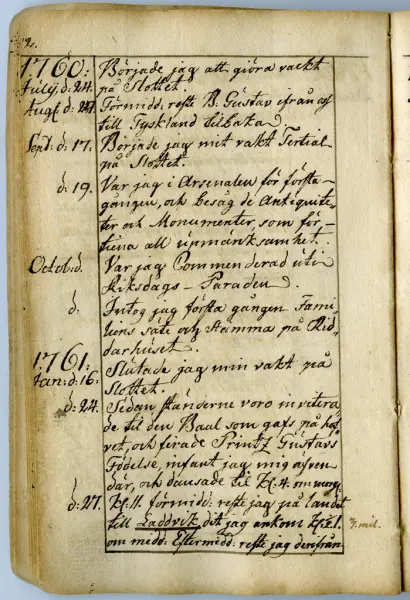 2.
1760: Började jag att giöra vackt
July: d: 24. på Slottet.
Aug: d: 27. Förmidd: reste B: Gustav ifrån oss
till Tyskland tilbaka.
Sept: d: 17. Började jag mit vakt Tertial
på Slottet.
d: 19. Var jag i Arsenalen för första
gången, och besåg de Antiquite-
ter och Monumenter, som för-
tiena all upmärksamhet.
Octob: d. Var jag Commenderad uti
Riksdags-Paraden.
d. Intog jag första gången Fami-
liens säte och Stamma på Rid-
darhuset.
1761: Slutade jag min vakt på
Jan: d: 16. Slottet.
d: 24. Sedan ständerne voro invitera
de til den Baal som gafs på hof
vet, och firade Printz Gustavs
Födelse, infant jag mig äfven
där, och dansade til Kl. 4. om morg:
d: 27. Kl. 11. förmidd: reste jag på landet
till Laddvik dit jag ankom Kl. 1. 7. mil.
om midd: Eftermidd: reste jag derifrån